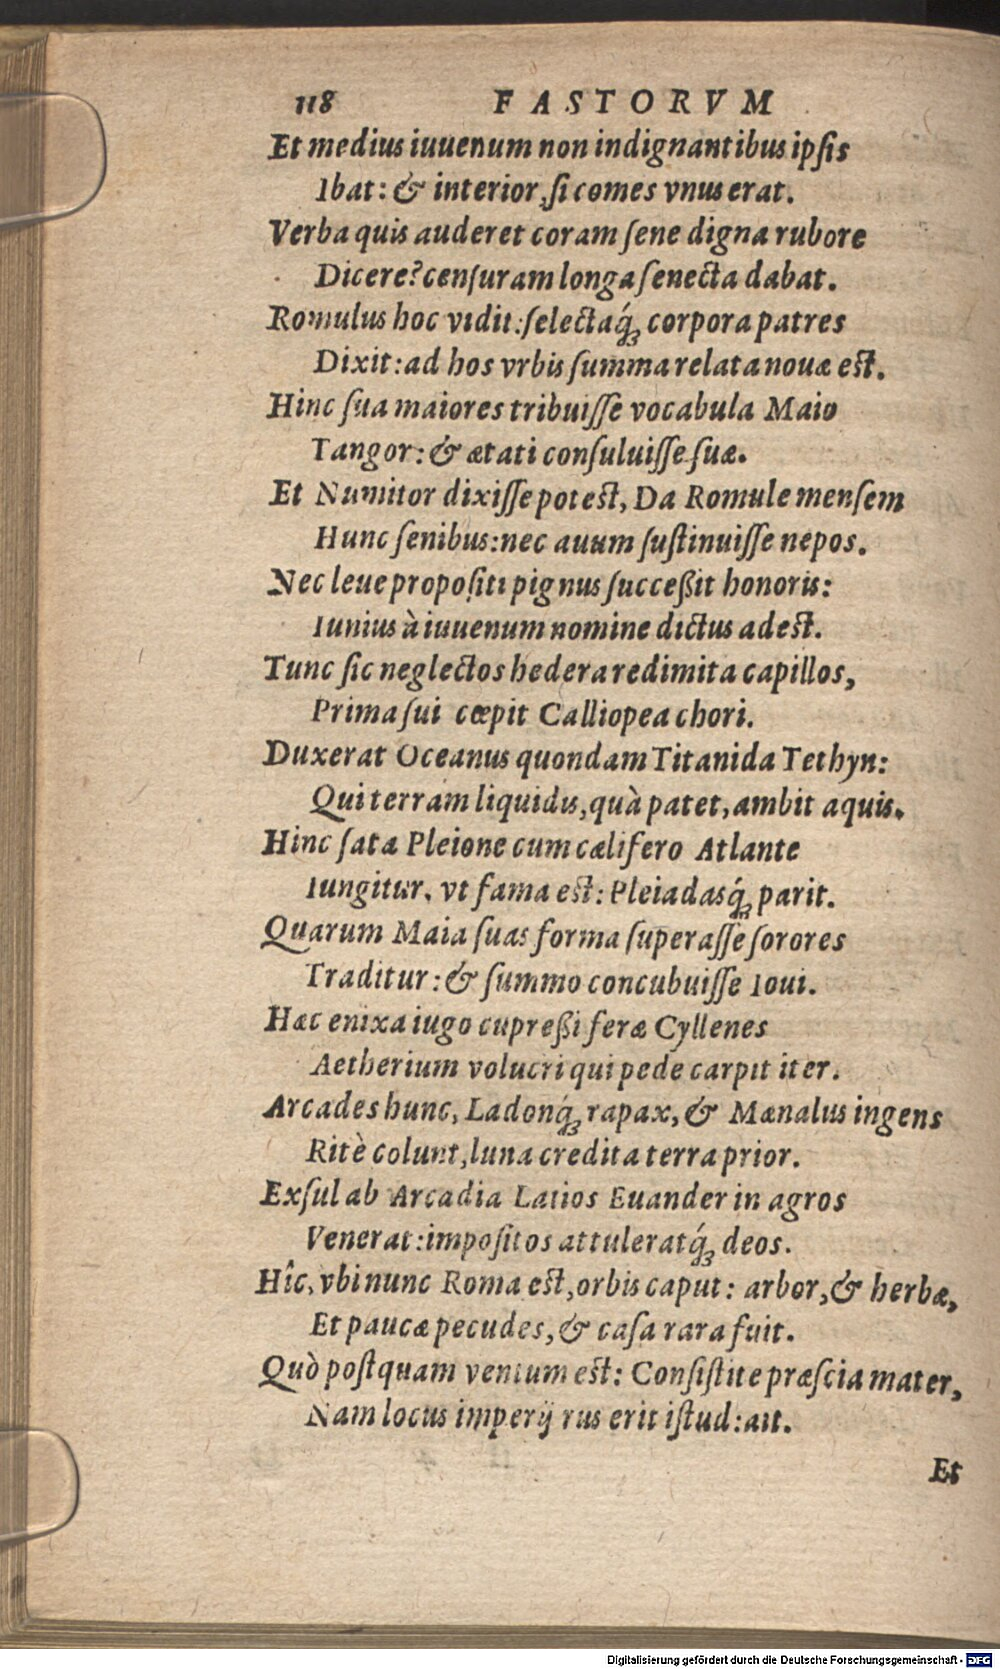 118 FASTORVM
Et medius iuuenum non indignantibus ipſis
Ibat: & interior, ſi comes vnus erat.
Verba quis auderet coram ſene digna rubore
Dicere? cenſuram longa ſenecta dabat.
Romulus hoc vidit: ſelectaq́ꝫ corpora patres
Dixit: ad hos vrbis ſumma relata nouæ eſt.
Hinc ſua maiores tribuiſſe vocabula Maio
Tangor: & ætati conſuluiſſe ſuæ.
Et Numitor dixiſſe poteſt, Da Romule menſem
Hunc ſenibus: nec auum ſuſtinuiſſe nepos.
Nec leue propoſiti pignus ſucceßit honoris:
Iunius à iuuenum nomine dictus adeſt.
Tunc ſic neglectos hedera redimita capillos,
Prima ſui cœpit Calliopea chori.
Duxerat Oceanus quondam Titanida Tethyn:
Qui terram liquidis, quà patet, ambit aquis.
Hinc ſata Pleione cum cælifero Atlante
Iungitur, vt fama eſt: Pleiadasq́ꝫ parit.
Quarum Maia ſuas forma ſuperaſſe ſorores
Traditur: & ſummo concubuiſſe Ioui.
Hæc enixa iugo cupreßiferæ Cyllenes
Aetherium volucri qui pede carpit iter.
Arcades hunc, Ladonq́ꝫ rapax, & Mænalus ingens
Ritè colunt, luna credita terra prior.
Exſul ab Arcadia Latios Euander in agros
Venerat: impoſitos attuleratq́ꝫ deos.
Hîc, vbi nunc Roma eſt, orbis caput: arbor, & herbæ,
Et paucæ pecudes, & caſa rara fuit.
Quò poſtquam ventum eſt: Conſiſtite præſcia mater,
Nam locus imperij rus erit iſtud: ait.
Et
Digitalisierung gefördert durch die Deutsche Forschungsgemeinschaft - DFG